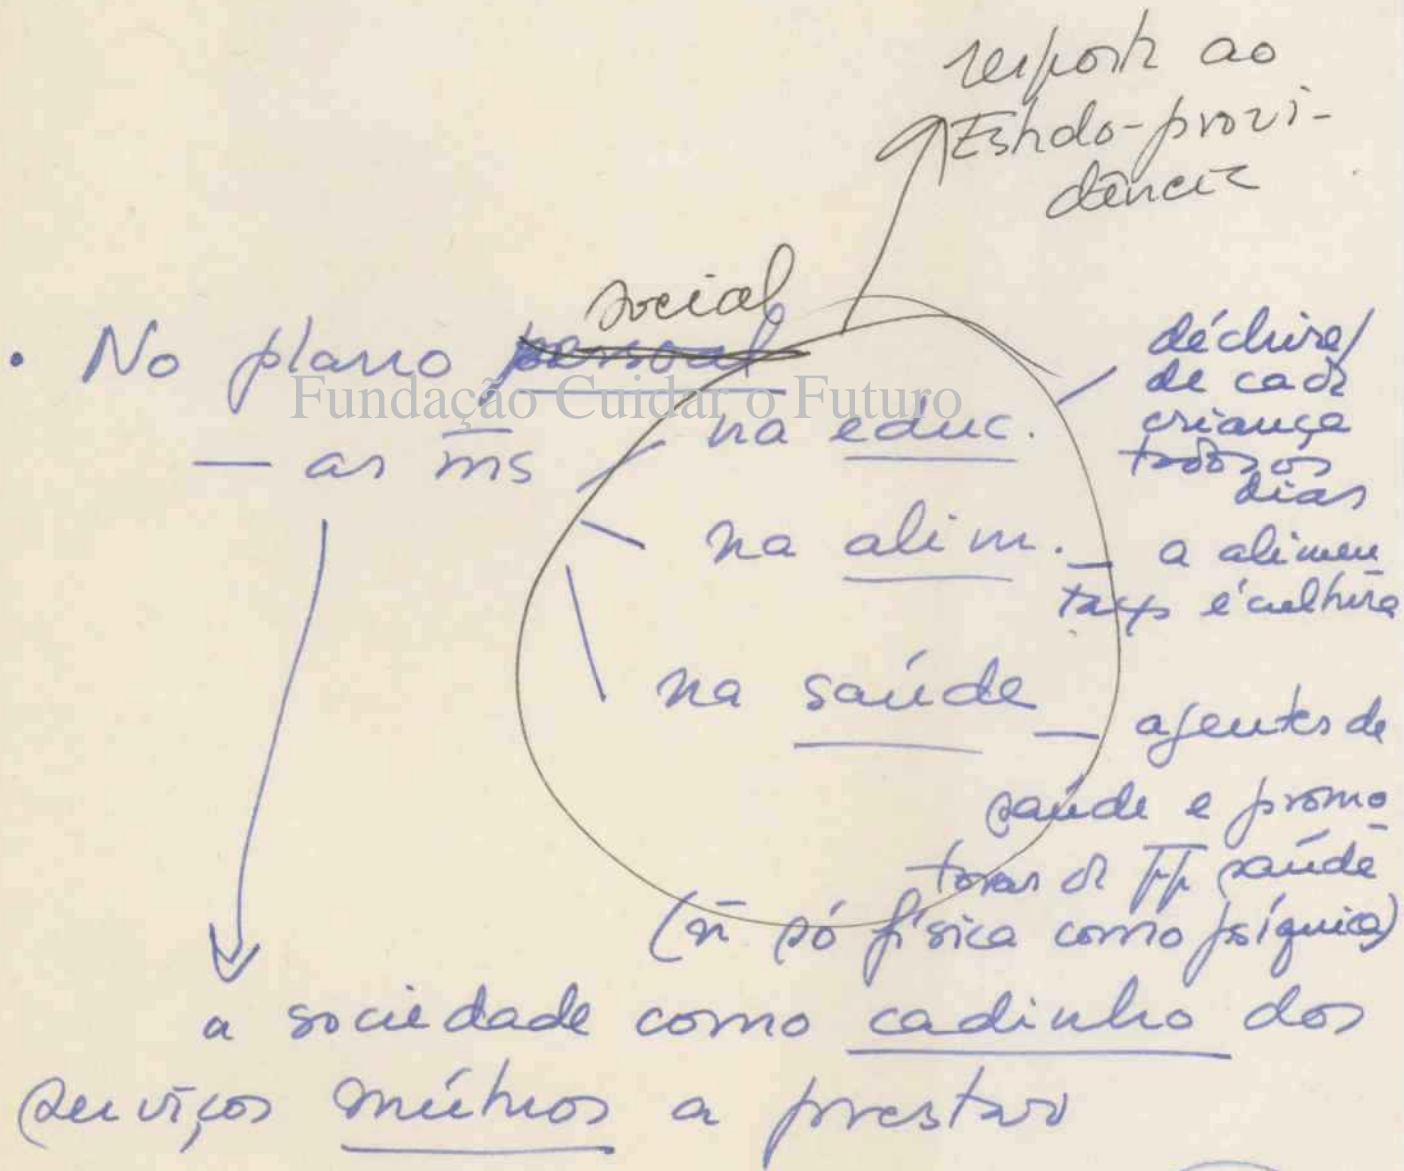 resposta ao
Estado-provi-
dência
social
• No plano pessoal
Fundação Cuidar o Futuro
— as m̄s
na educ.
déchire/
de cada
criança
todos os
dias
na alim. — a alimen
tação é cultura
na saúde — agentes de
saúde e promo-
toras de saúde
(ñ só física como psíquica)
a sociedade como cadinho dos
serviços mútuos a prestar